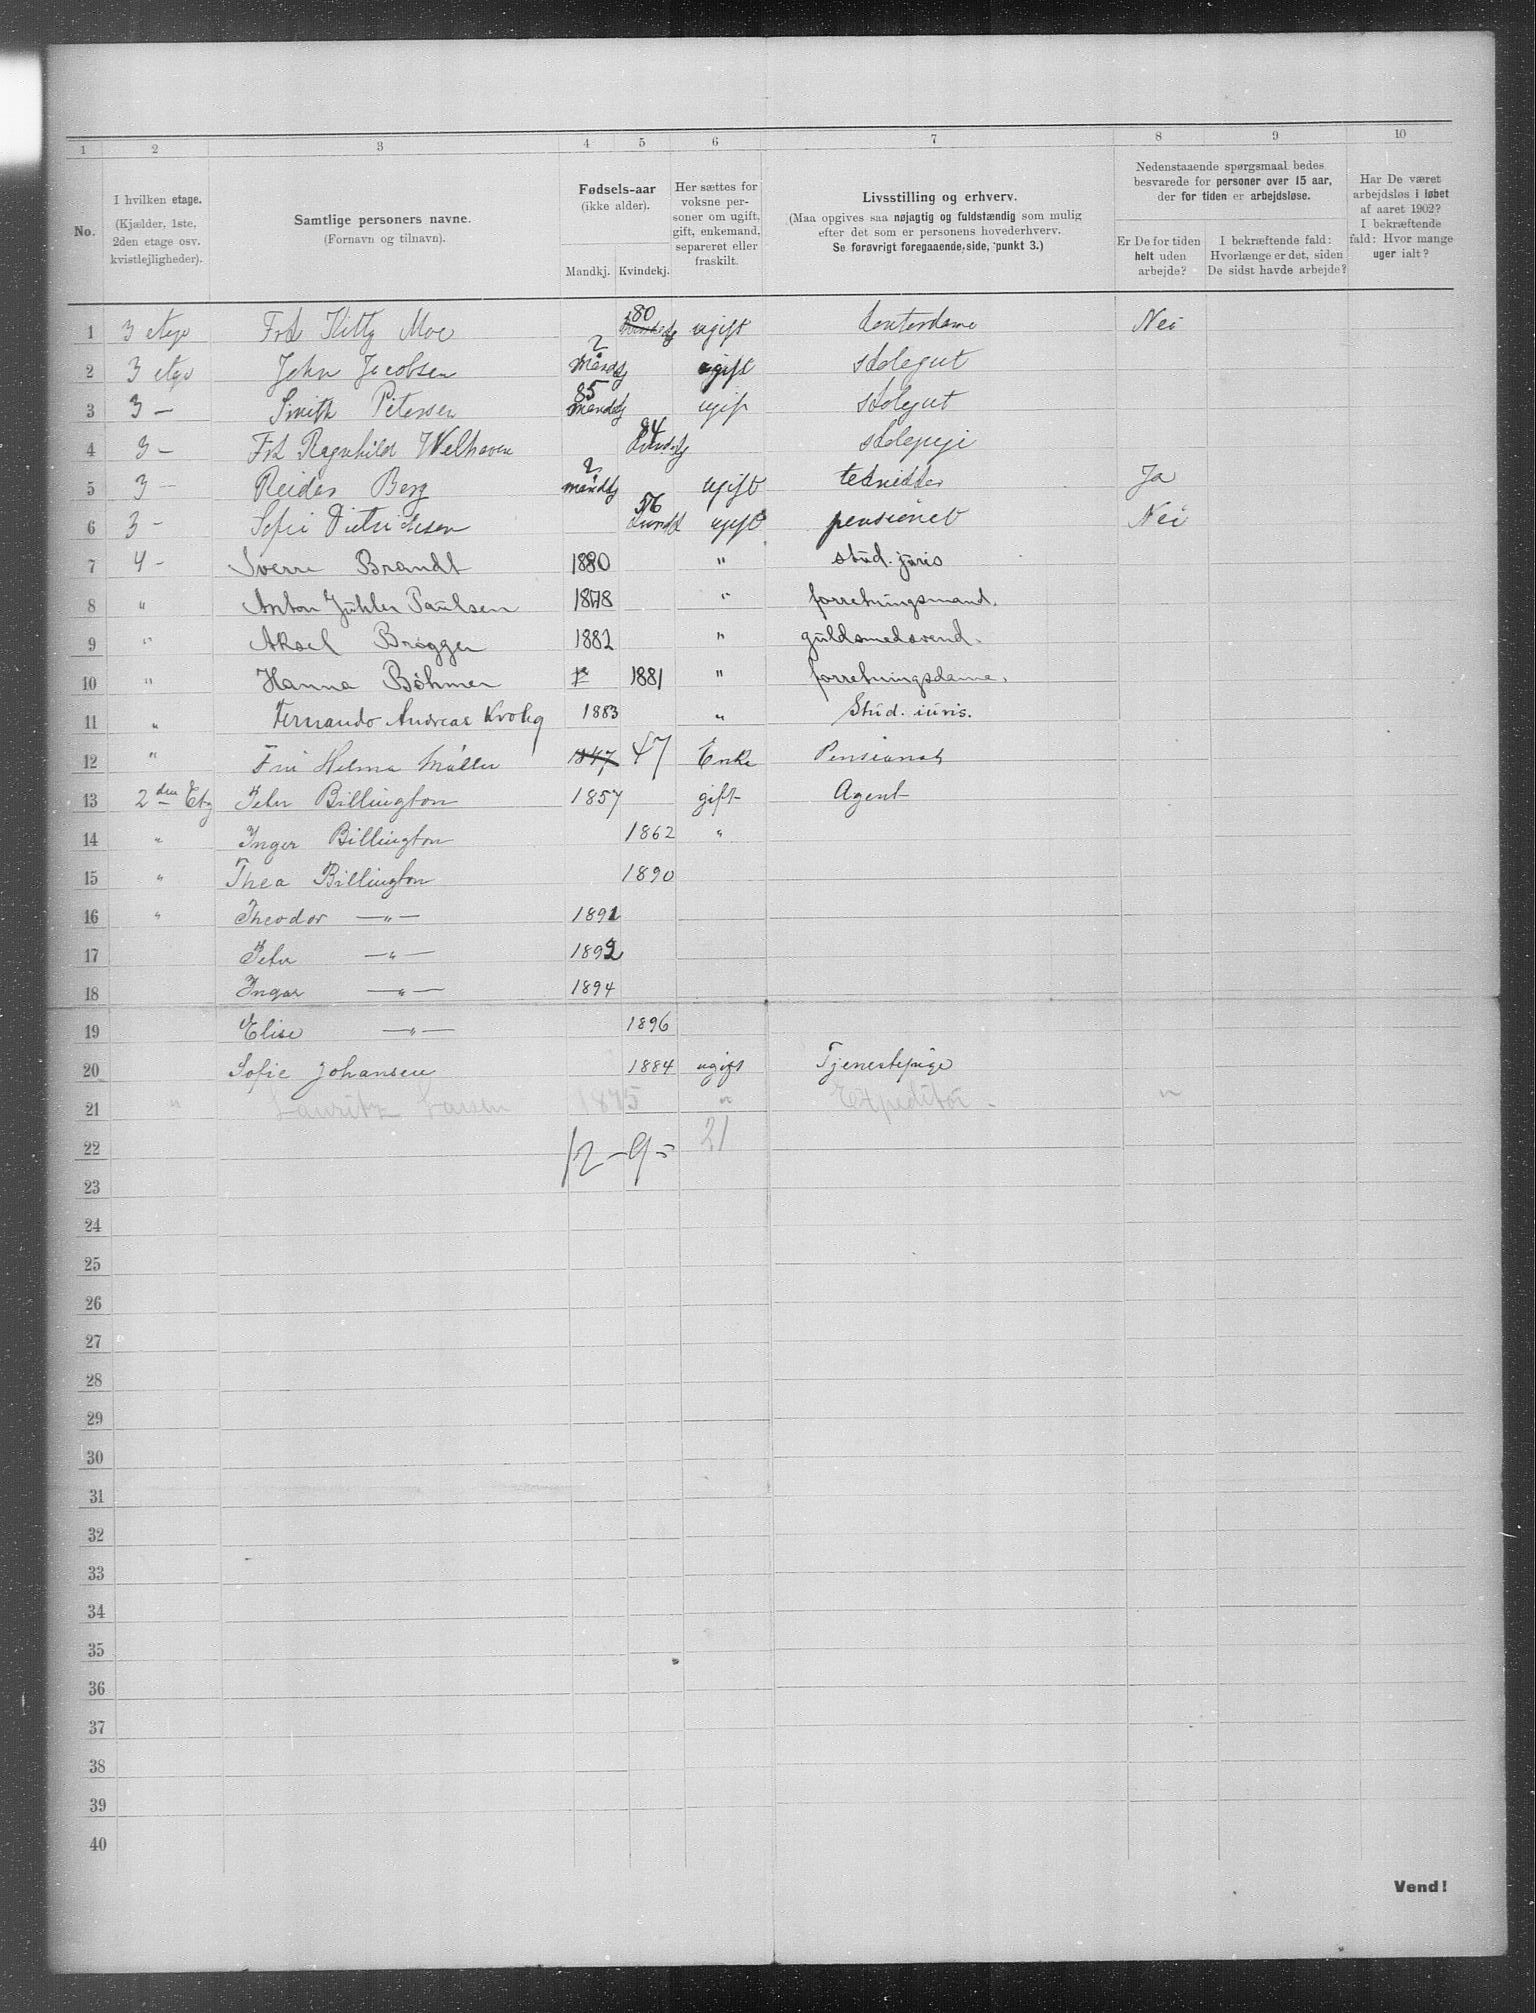 1 2 3 4 5 6 7 8 9 10
No.
I hvilken etage.
(Kjælder, 1ste,
2den etage osv.
kvistlejligheder).
Samtlige personers navne.
(Fornavn og tilnavn).
Fødsels-aar
(ikke alder).
Mandkj. Kvindekj.
Her sættes for
voksne per-
soner om ugift,
gift, enkemand,
separeret eller
fraskilt.
Livsstilling og erhverv.
(Maa opgives saa nøjagtig og fuldstændig som mulig
efter det som er personens hovederhverv.
Se forøvrigt foregaaende side, punkt 3.)
Nedenstaaende spørgsmaal bedes
besvarede for personer over 15 aar,
der for tiden er arbejdsløse.
Er De for tiden
helt uden
arbejde?
I bekræftende fald:
Hvorlænge er det, siden
De sidst havde arbejde?
Har De været
arbejdsløs i løbet
af aaret 1902?
I bekræftende
fald: Hvor mange
uger ialt?
1 3 etage Frk Kitty Moe 80 ugift kontordame Nei
2 3 etge John Jacobsen 2 Mandkj ugift skolegut
3 3 — Smith Petersen 85 Mandkj ugift skolegut
4 3 — Frk Ragnhild Welhaven 84 skolepige
5 3 — Reidar Berg 2 mandkj ugift tekniker Ja
6 3 - Sofie Dietrichsen 56 ugift pensionet Nei
7 4 - Sverre Brandt 1880 " stud. juris
8 " Anton Juhler Paulsen 1878 " forretningsmand.
9 " Aksel Brøgger 1882 " guldsmedsvend.
10 " Hanna Bøhmer 1881 " forretningsdame.
11 " Fernando Andreas Krohg 1883 " Stud. iuris.
12 " Fru Helma Müller 1847 47 Enke Pensionat
13 2den Etg Peter Billington 1857 gift Agent
14 " Inger Billington 1862 "
15 " Thea Billington 1890
16 " Theodor —"— 1891
17 Peter —"— 1892
18 Ingar —"— 1894
19 Elise —"— 1896
20 Sofie Johansen 1884 ugift Tjenestepige
21 " Lauritz Larsen 1875 " Expeditør - "
22 12 - 9 = 21
23
24
25
26
27
28
29
30
31
32
33
34
35
36
37
38
39
40
Vend!